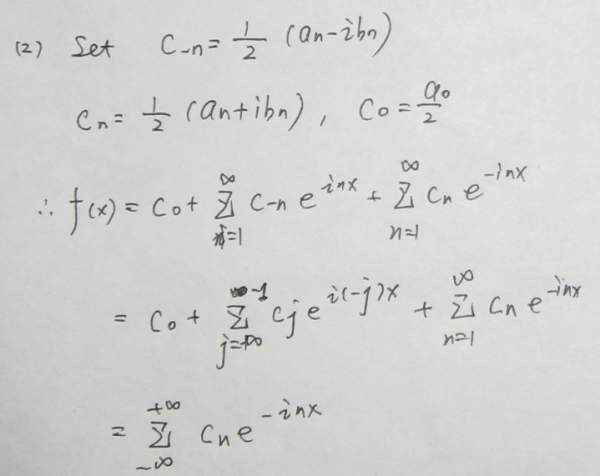 (2) Set C-n = 1/2 (an - ibn)
Cn = 1/2 (an + ibn), C0 = a0/2
∴ f(x) = C0 + ∑_{n=1}^{∞} C-n e^{inx} + ∑_{n=1}^{∞} Cn e^{-inx}
= C0 + ∑_{j=-∞}^{-1} Cj e^{i(-j)x} + ∑_{n=1}^{∞} Cn e^{-inx}
= ∑_{-∞}^{+∞} Cn e^{-inx}